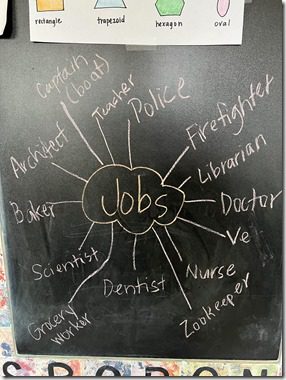 rectangle
trapezoid
hexagon
oval
Captain
(boat)
Teacher
Police
Firefighter
Architect
Librarian
Baker
Jobs
Doctor
Ve
Scientist
Dentist
Nurse
Grocery
worker
Zookeeper